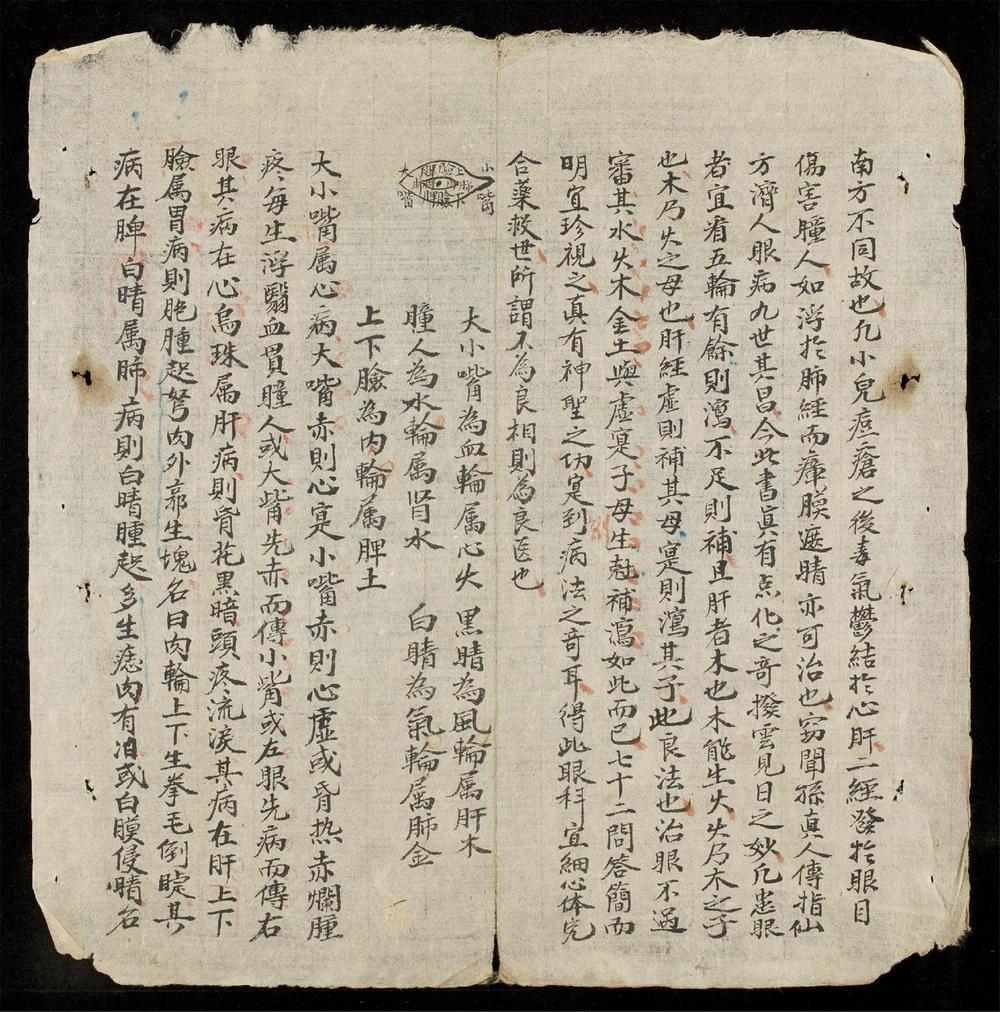 南方不同故也凢小兒痘瘡之後毒氣鬱結於心肝二經發於眼目
傷害瞳人如浮於肺經而瘴膜遮睛亦可治也窃聞孫真人傳指仙
方濟人眼病九世其昌今此書真有点化之竒撥雲見日之妙凢患眼
者宜看五輪有餘則瀉不足則補且肝者木也木能生火火乃木之子
也木乃火之母也肝經虚則補其母寔則瀉其子此良法也治眼不過
審其水火木金土與虚寔子母生尅補瀉如此而已七十二問答簡而
明宜珍視之真有神聖之功寔到病法之竒耳得此眼科宜細心体究
合藥救世所謂不為良相則為良医也
小嘴
大嘴
上
下
大小嘴為血輪属心火 黒睛為風輪属肝木
瞳人為水輪属肾水 白睛為氣輪属肺金
上下臉為肉輪属脾土
大小嘴属心病大嘴赤則心寔小嘴赤則心虚或昏热赤爛腫
疼每生浮翳血貫瞳人或大眥先赤而傳小眥或左眼先病而傳右
眼其病在心烏珠属肝病則昏花黒暗頭疼流淚其病在肝上下
臉属胃病則胞腫起努肉外廓生塊名曰肉輪上下生拳毛倒睫其
病在脾白睛属肺病則白睛腫起多生瘜肉有泪或白膜侵睛名